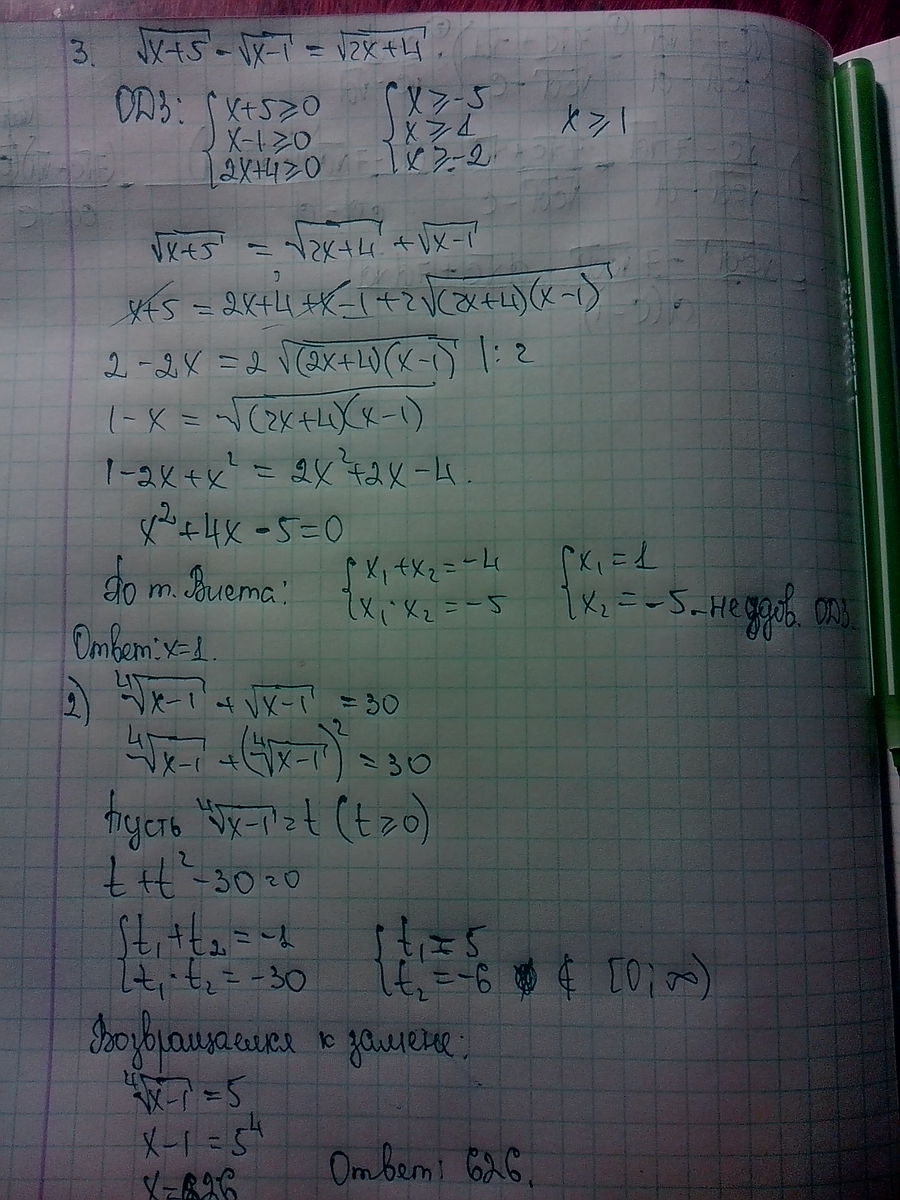 3. √(x+5) - √(x-1) = √(2x+4)
ОДЗ: { x+5≥0 { x≥-5 x≥1
x-1≥0 x≥1
2x+4≥0 x≥-2
√(x+5) = √(2x+4) + √(x-1)
x+5 = 2x+4+x-1+2√((2x+4)(x-1))
2-2x = 2√((2x+4)(x-1)) |:2
1-x = √((2x+4)(x-1))
1-2x+x² = 2x²+2x-4.
x²+4x-5=0
По т. Виета: { x₁+x₂=-4 { x₁=1
x₁·x₂=-5 x₂=-5 -не удов. ОДЗ.
Ответ: x=1.
2) ⁴√(x-1) + √(x-1) = 30
⁴√(x-1) + (⁴√(x-1))² = 30
Пусть ⁴√(x-1) = t (t≥0)
t+t²-30=0
{ t₁+t₂=-1 { t₁=5
t₁·t₂=-30 t₂=-6 ∉ [0;∞)
Возвращаемся к замене:
⁴√(x-1) = 5
x-1=5⁴
x=626 Ответ: 626.